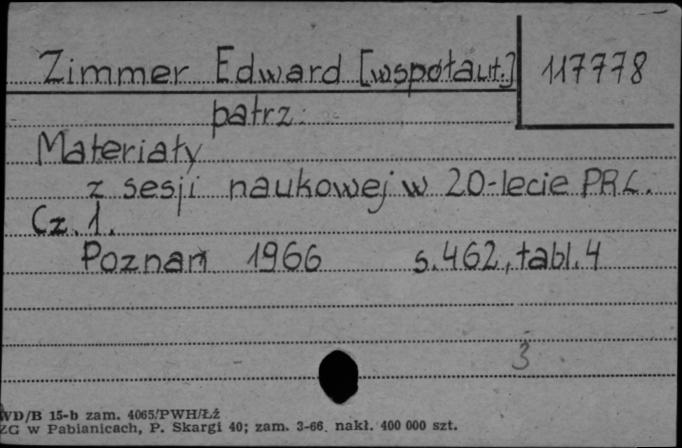 Zimmer Edward [współaut.] 117778
patrz:
Materiały
z sesji naukowej w 20-lecie PRL.
Cz. 1.
Poznań 1966 s. 462, tabl. 4
3
WD/B 15-b zam. 4065/PWH/Łź
ZG w Pabianicach, P. Skargi 40; zam. 3-66. nakł. 400 000 szt.